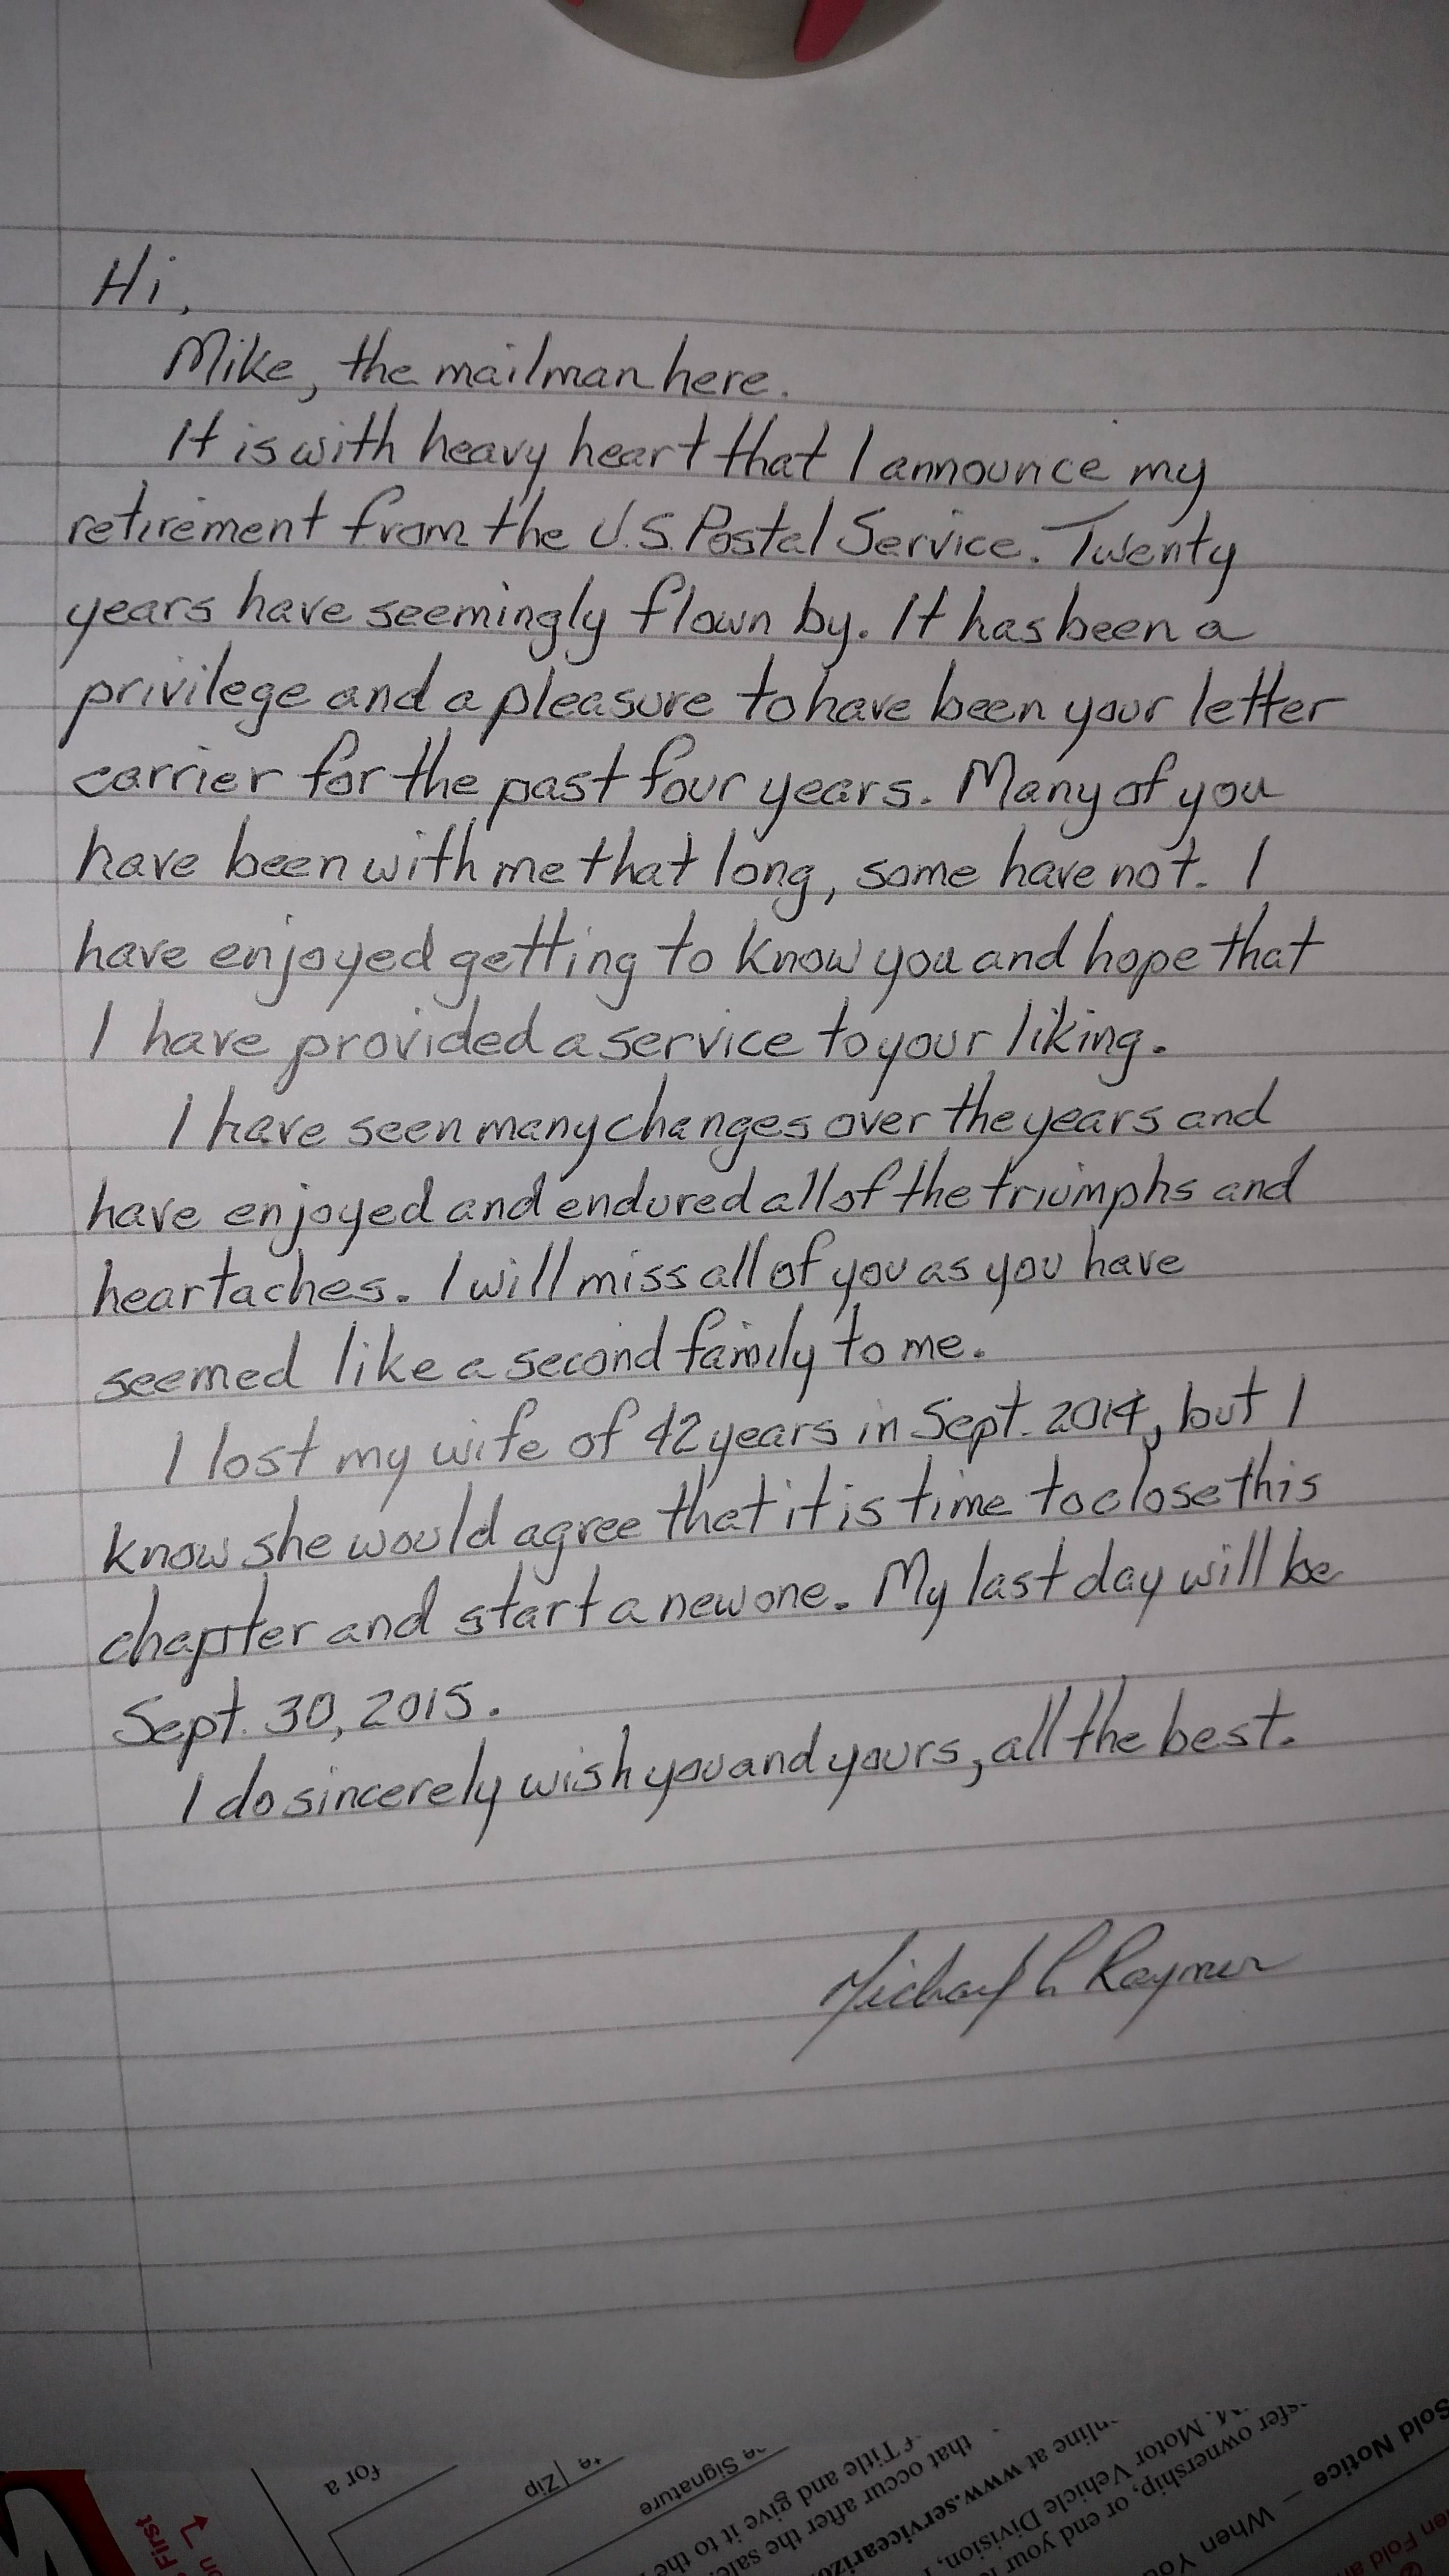 Hi,
Mike, the mailman here.
It is with heavy heart that I announce my
retirement from the U.S. Postal Service. Twenty
years have seemingly flown by. It has been a
privilege and a pleasure to have been your letter
carrier for the past four years. Many of you
have been with me that long, some have not. I
have enjoyed getting to know you and hope that
I have provided a service to your liking.
I have seen many changes over the years and
have enjoyed and endured all of the triumphs and
heartaches. I will miss all of you as you have
seemed like a second family to me.
I lost my wife of 42 years in Sept. 2014, but I
know she would agree that it is time to close this
chapter and start a new one. My last day will be
Sept. 30, 2015.
I do sincerely wish you and yours, all the best.
Michael Raymer
Sold Notice — When
ownership, or end your
Motor Vehicle Division,
at www.servicearizo
that occur after the sale
Title and give it to the
Signature
Zip
for a
First